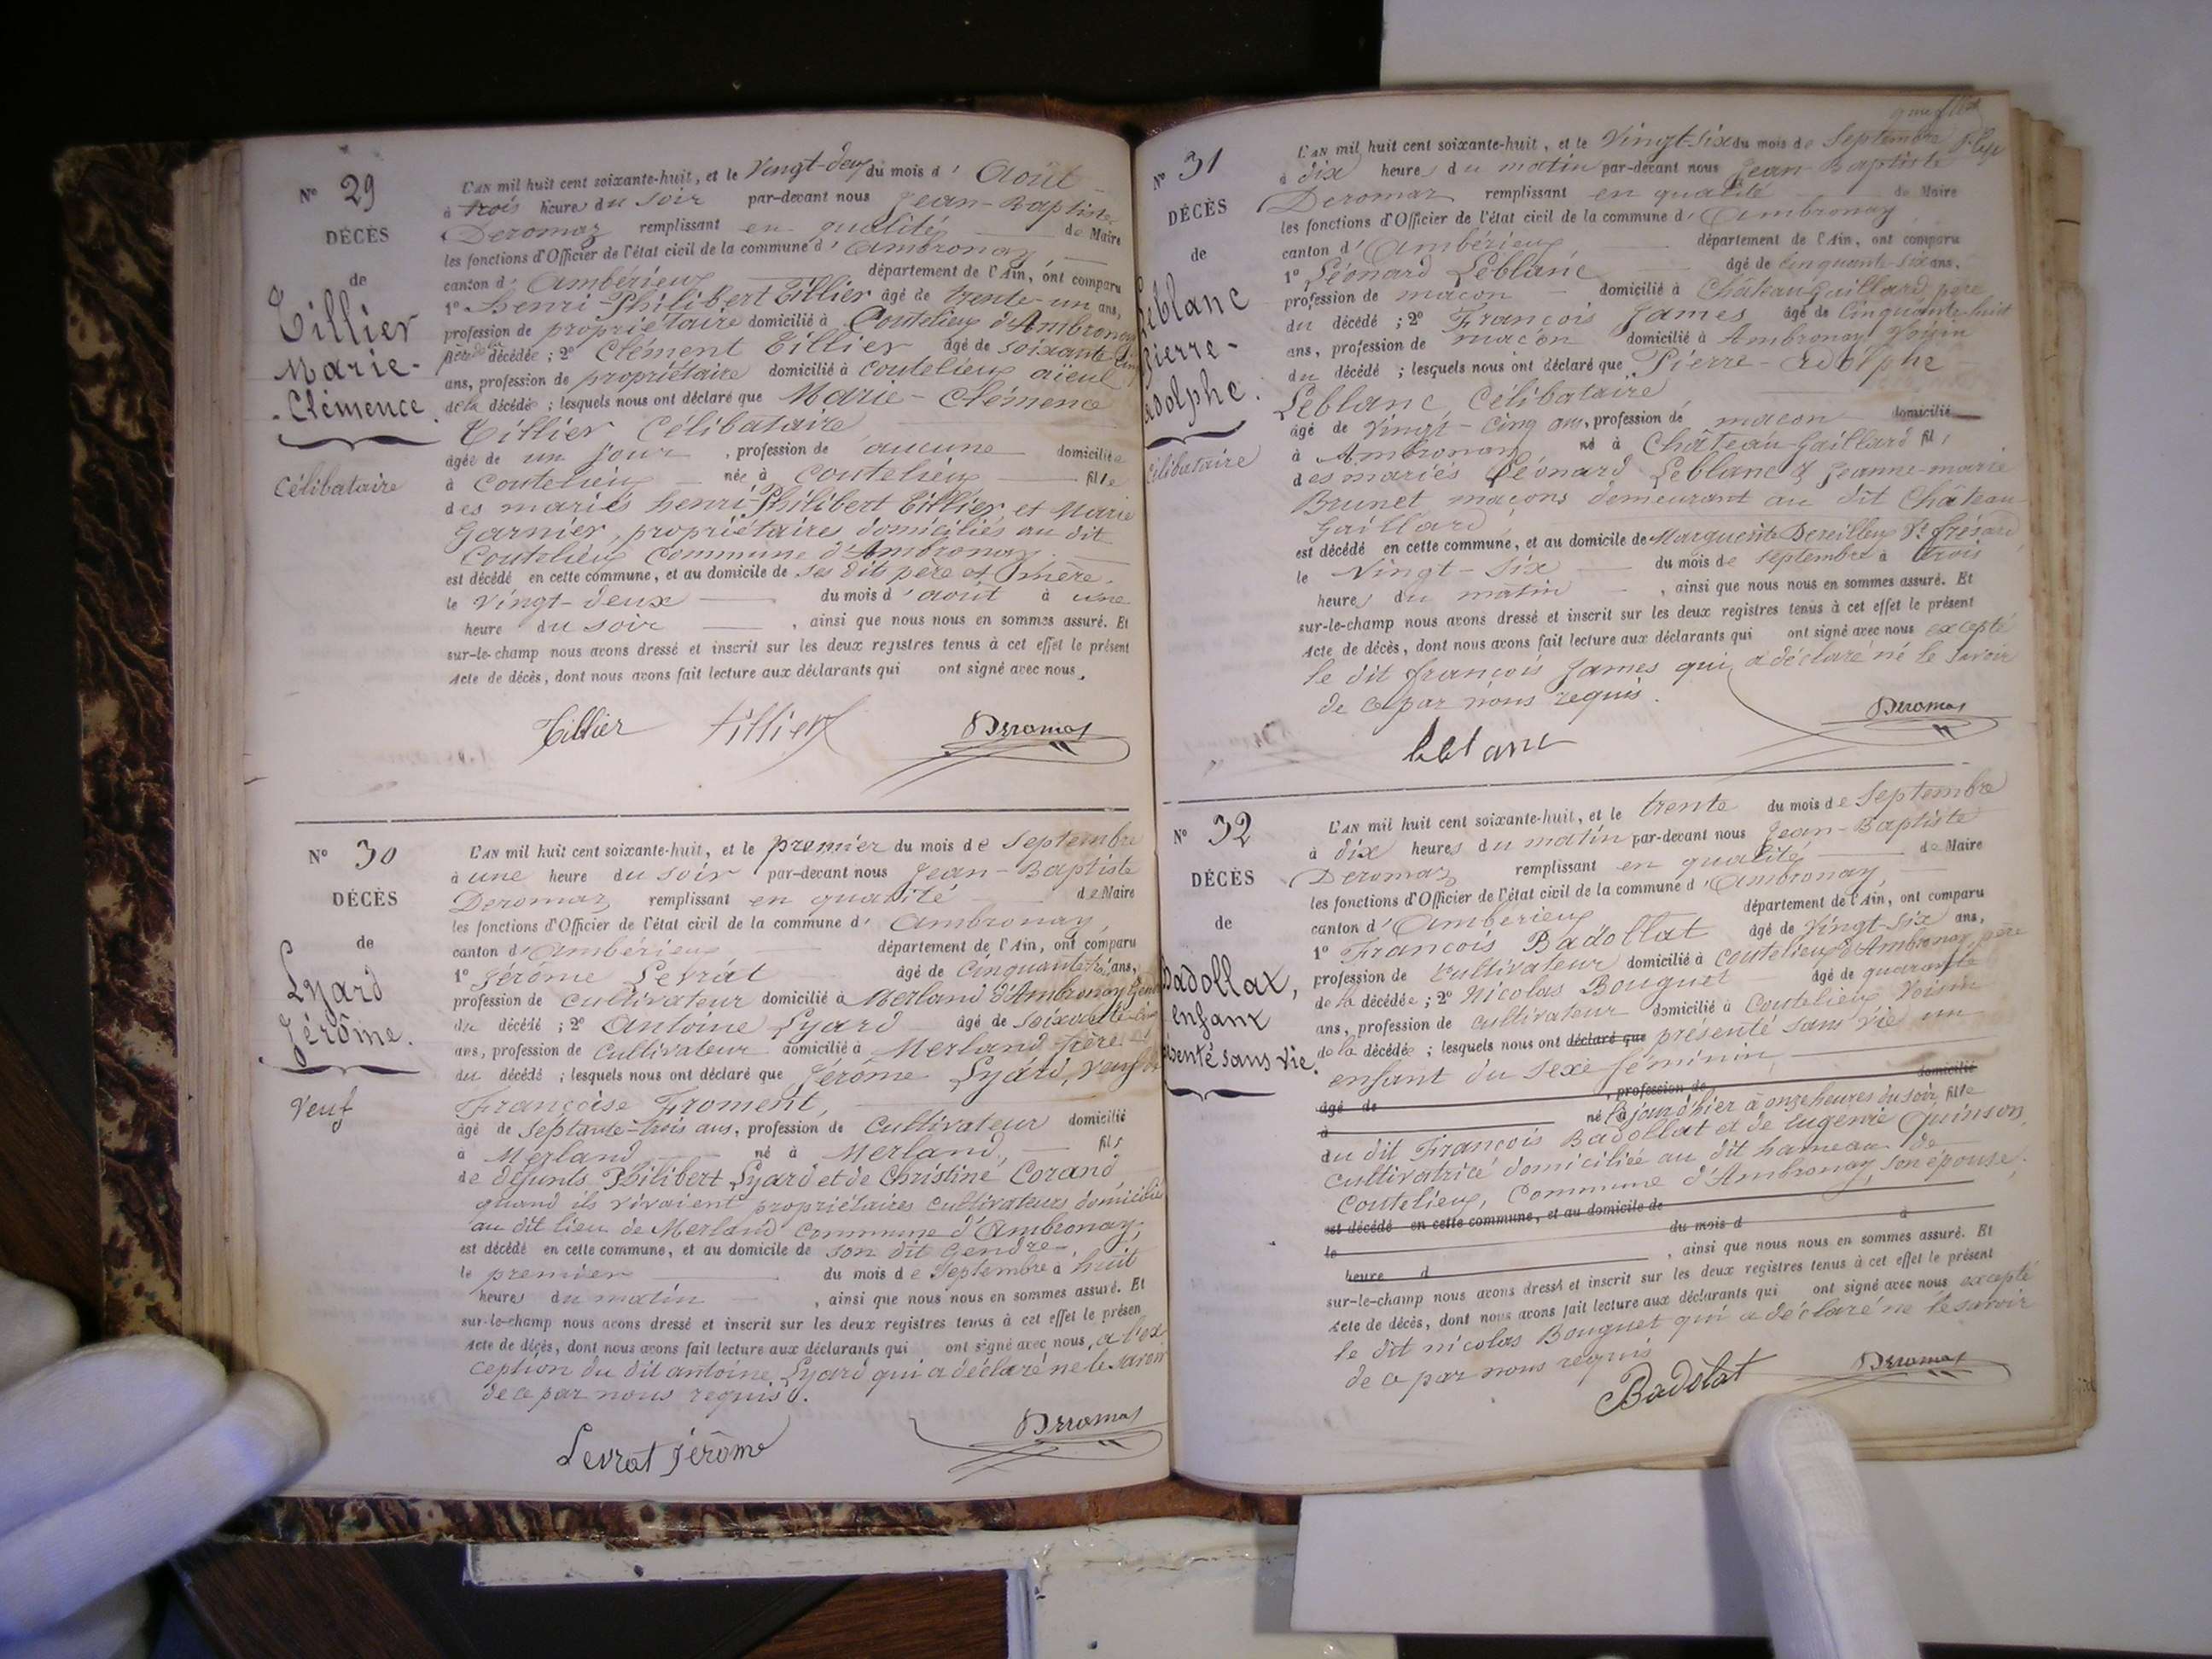 Nº 29
DÉCÈS
de
Tillier
Marie-
-Clémence.
Célibataire
L'AN mil huit cent soixante-huit, et le Vingt-deux du mois d' Août
à trois heures du soir par-devant nous Jean-Baptiste
Deromas remplissant en qualité de Maire
les fonctions d'Officier de l'état civil de la commune d' Ambronay,
canton d' Ambérieux département de l'Ain, ont comparu
1º henri-Philibert Tillier âgé de trente-un ans,
profession de propriétaire domicilié à Coutelieux d'Ambronay
père de la décédée ; 2º Clément Tillier âgé de soixante cinq
ans, profession de propriétaire domicilié à Coutelieux aïeul
de la décédée ; lesquels nous ont déclaré que Marie-Clémence
Tillier Célibataire
âgée de un jour, profession de aucune domiciliée
à Coutelieux née à Coutelieux fille
des mariés henri-Philibert Tillier et Marie
Garnier, propriétaires domiciliés au dit
Coutelieux Commune d'Ambronay.
est décédé en cette commune, et au domicile de ses dits père et mère.
le vingt-deux du mois d'août à une
heure du soir, ainsi que nous nous en sommes assuré. Et
sur-le-champ nous avons dressé et inscrit sur les deux registres tenus à cet effet le présent
Acte de décès, dont nous avons fait lecture aux déclarants qui ont signé avec nous.
Tillier tillier Deromas
Nº 30
DÉCÈS
de
Lyard
Jérôme.
Veuf
L'AN mil huit cent soixante-huit, et le premier du mois de Septembre
à une heure du soir par-devant nous Jean-Baptiste
Deromas remplissant en qualité de Maire
les fonctions d'Officier de l'état civil de la commune d' Ambronay,
canton d' Ambérieux département de l'Ain, ont comparu
1º Jérôme Levrat âgé de Cinquante ans,
profession de Cultivateur domicilié à Merland d'Ambronay Gendre
du décédé ; 2º Antoine Lyard âgé de soixante
ans, profession de Cultivateur domicilié à Merland frère
du décédé ; lesquels nous ont déclaré que Jérôme Lyard, Veuf de
Françoise Froment,
âgé de Septante-trois ans, profession de Cultivateur domicilié
à Merland né à Merland, fils
de défunts Philibert Lyard et de Christine Corand
quand ils vivaient propriétaires cultivateurs domiciliés
au dit lieu de Merland Commune d'Ambronay,
est décédé en cette commune, et au domicile de son dit Gendre
le premier du mois de Septembre à huit
heures du matin, ainsi que nous nous en sommes assuré. Et
sur-le-champ nous avons dressé et inscrit sur les deux registres tenus à cet effet le présen
Acte de décès, dont nous avons fait lecture aux déclarants qui ont signé avec nous, à l'ex
ception du dit antoine Lyard qui a déclaré ne le savoir
de ce par nous requis.
Levrat jérôme Deromas
Nº 31
DÉCÈS
de
Leblanc
Pierre-
adolphe.
Célibataire
L'AN mil huit cent soixante-huit, et le Vingt-six du mois de Septembre
à dix heures du matin par-devant nous Jean-Baptiste
Deromas remplissant en qualité de Maire
les fonctions d'Officier de l'état civil de la commune d' Ambronay
canton d' Ambérieux département de l'Ain, ont comparu
1º Léonard Leblanc âgé de Cinquante-six ans,
profession de maçon domicilié à Château-Gaillard père
du décédé ; 2º François James âgé de Cinquante-huit
ans, profession de maçon domicilié à Ambronay Voisin
du décédé ; lesquels nous ont déclaré que Pierre-Adolphe
Leblanc Célibataire
âgé de Vingt-Cinq ans, profession de maçon domicilié
à Ambronay né à Château-Gaillard fils
des mariés Léonard Leblanc & Jeanne-marie
Brunet maçons demeurant au dit Château-
Gaillard
est décédé en cette commune, et au domicile de Marguerite
le Vingt-Six du mois de septembre à trois
heures du matin, ainsi que nous nous en sommes assuré. Et
sur-le-champ nous avons dressé et inscrit sur les deux registres tenus à cet effet le présent
Acte de décès, dont nous avons fait lecture aux déclarants qui ont signé avec nous excepté
le dit françois James qui a déclaré ne le savoir
de ce par nous requis.
leblanc Deromas
Nº 32
DÉCÈS
de
Badollat,
enfant
présenté sans vie.
L'AN mil huit cent soixante-huit, et le trente du mois de Septembre
à dix heures du matin par-devant nous Jean-Baptiste
Deromas remplissant en qualité de Maire
les fonctions d'Officier de l'état civil de la commune d' Ambronay,
canton d' Ambérieux département de l'Ain, ont comparu
1º François Badollat âgé de Vingt-six ans,
profession de Cultivateur domicilié à Coutelieux d'Ambronay père
de la décédée ; 2º Nicolas Bouguet âgé de quarante
ans, profession de Cultivateur domicilié à Coutelieux Voisin
de la décédée ; lesquels nous ont déclaré que présenté sans vie un
enfant du Sexe féminin,
âgé de, profession de domicilié
à né le jour d'hier à onze heures du soir, fille
du dit François Badollat et de Eugenie Quinson,
cultivatrice domiciliée au dit hameau de
Coutelieux, Commune d'Ambronay, son épouse.
est décédé en cette commune, et au domicile de
le du mois d à
heure d, ainsi que nous nous en sommes assuré. Et
sur-le-champ nous avons dressé et inscrit sur les deux registres tenus à cet effet le présent
Acte de décès, dont nous avons fait lecture aux déclarants qui ont signé avec nous excepté
le dit nicolas Bouguet qui a déclaré ne le savoir
de ce par nous requis
Badolat Deromas